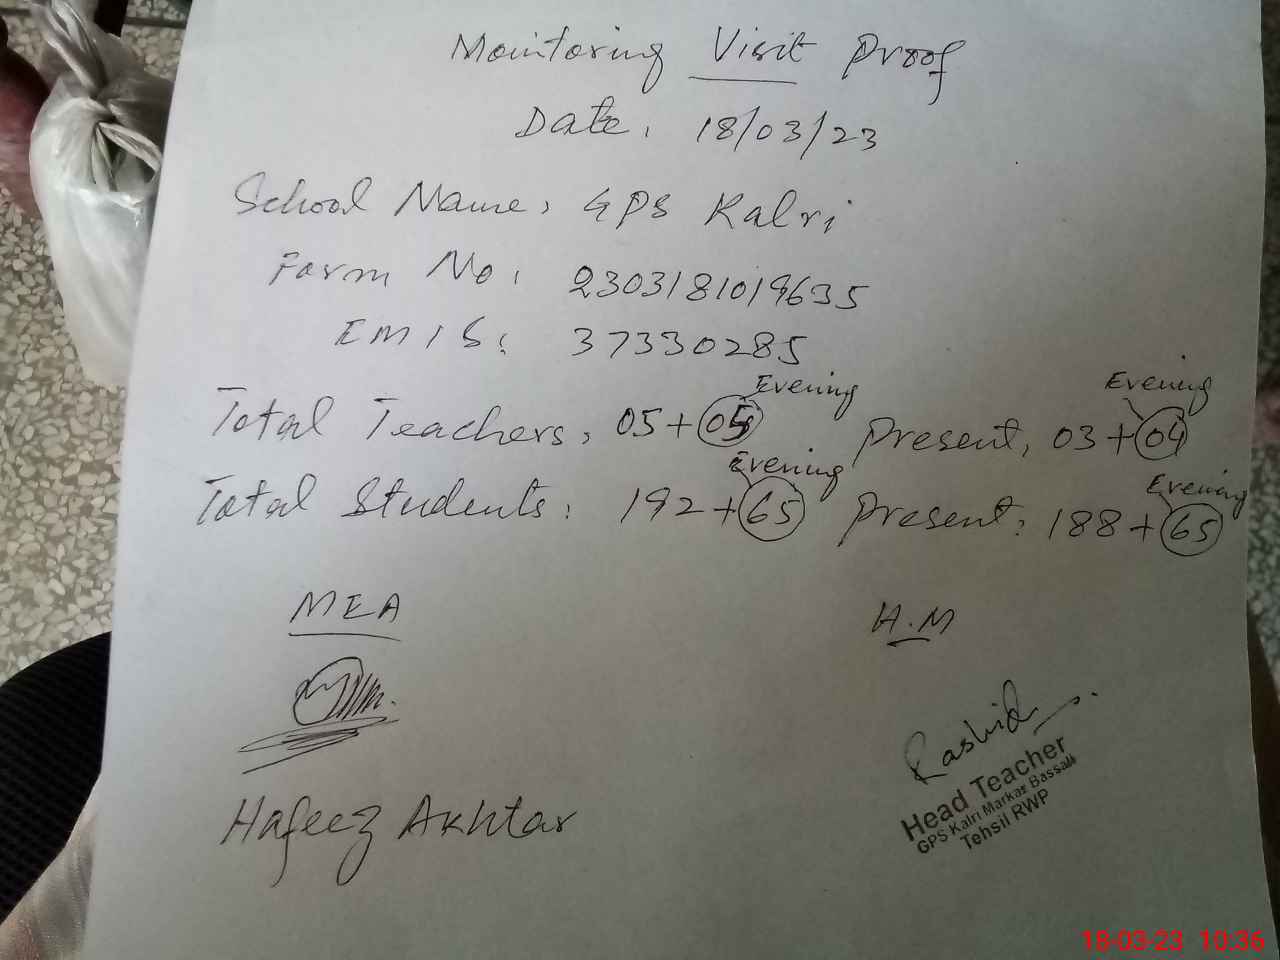 Monitoring Visit Proof
Date: 18/03/23
School Name: GPS Kalri
Farm No: 2303181019635
EMIS: 37330285
Evening Evening
Total Teachers: 05+ Present: 03+04
Evening Evening
Total Students: 192+65 Present: 188+65
MEA H.M
Rashid
Head Teacher
GPS Kalri Markaz Bassali
Tehsil RWP
Hafeez Akhtar
18-03-23 10:36